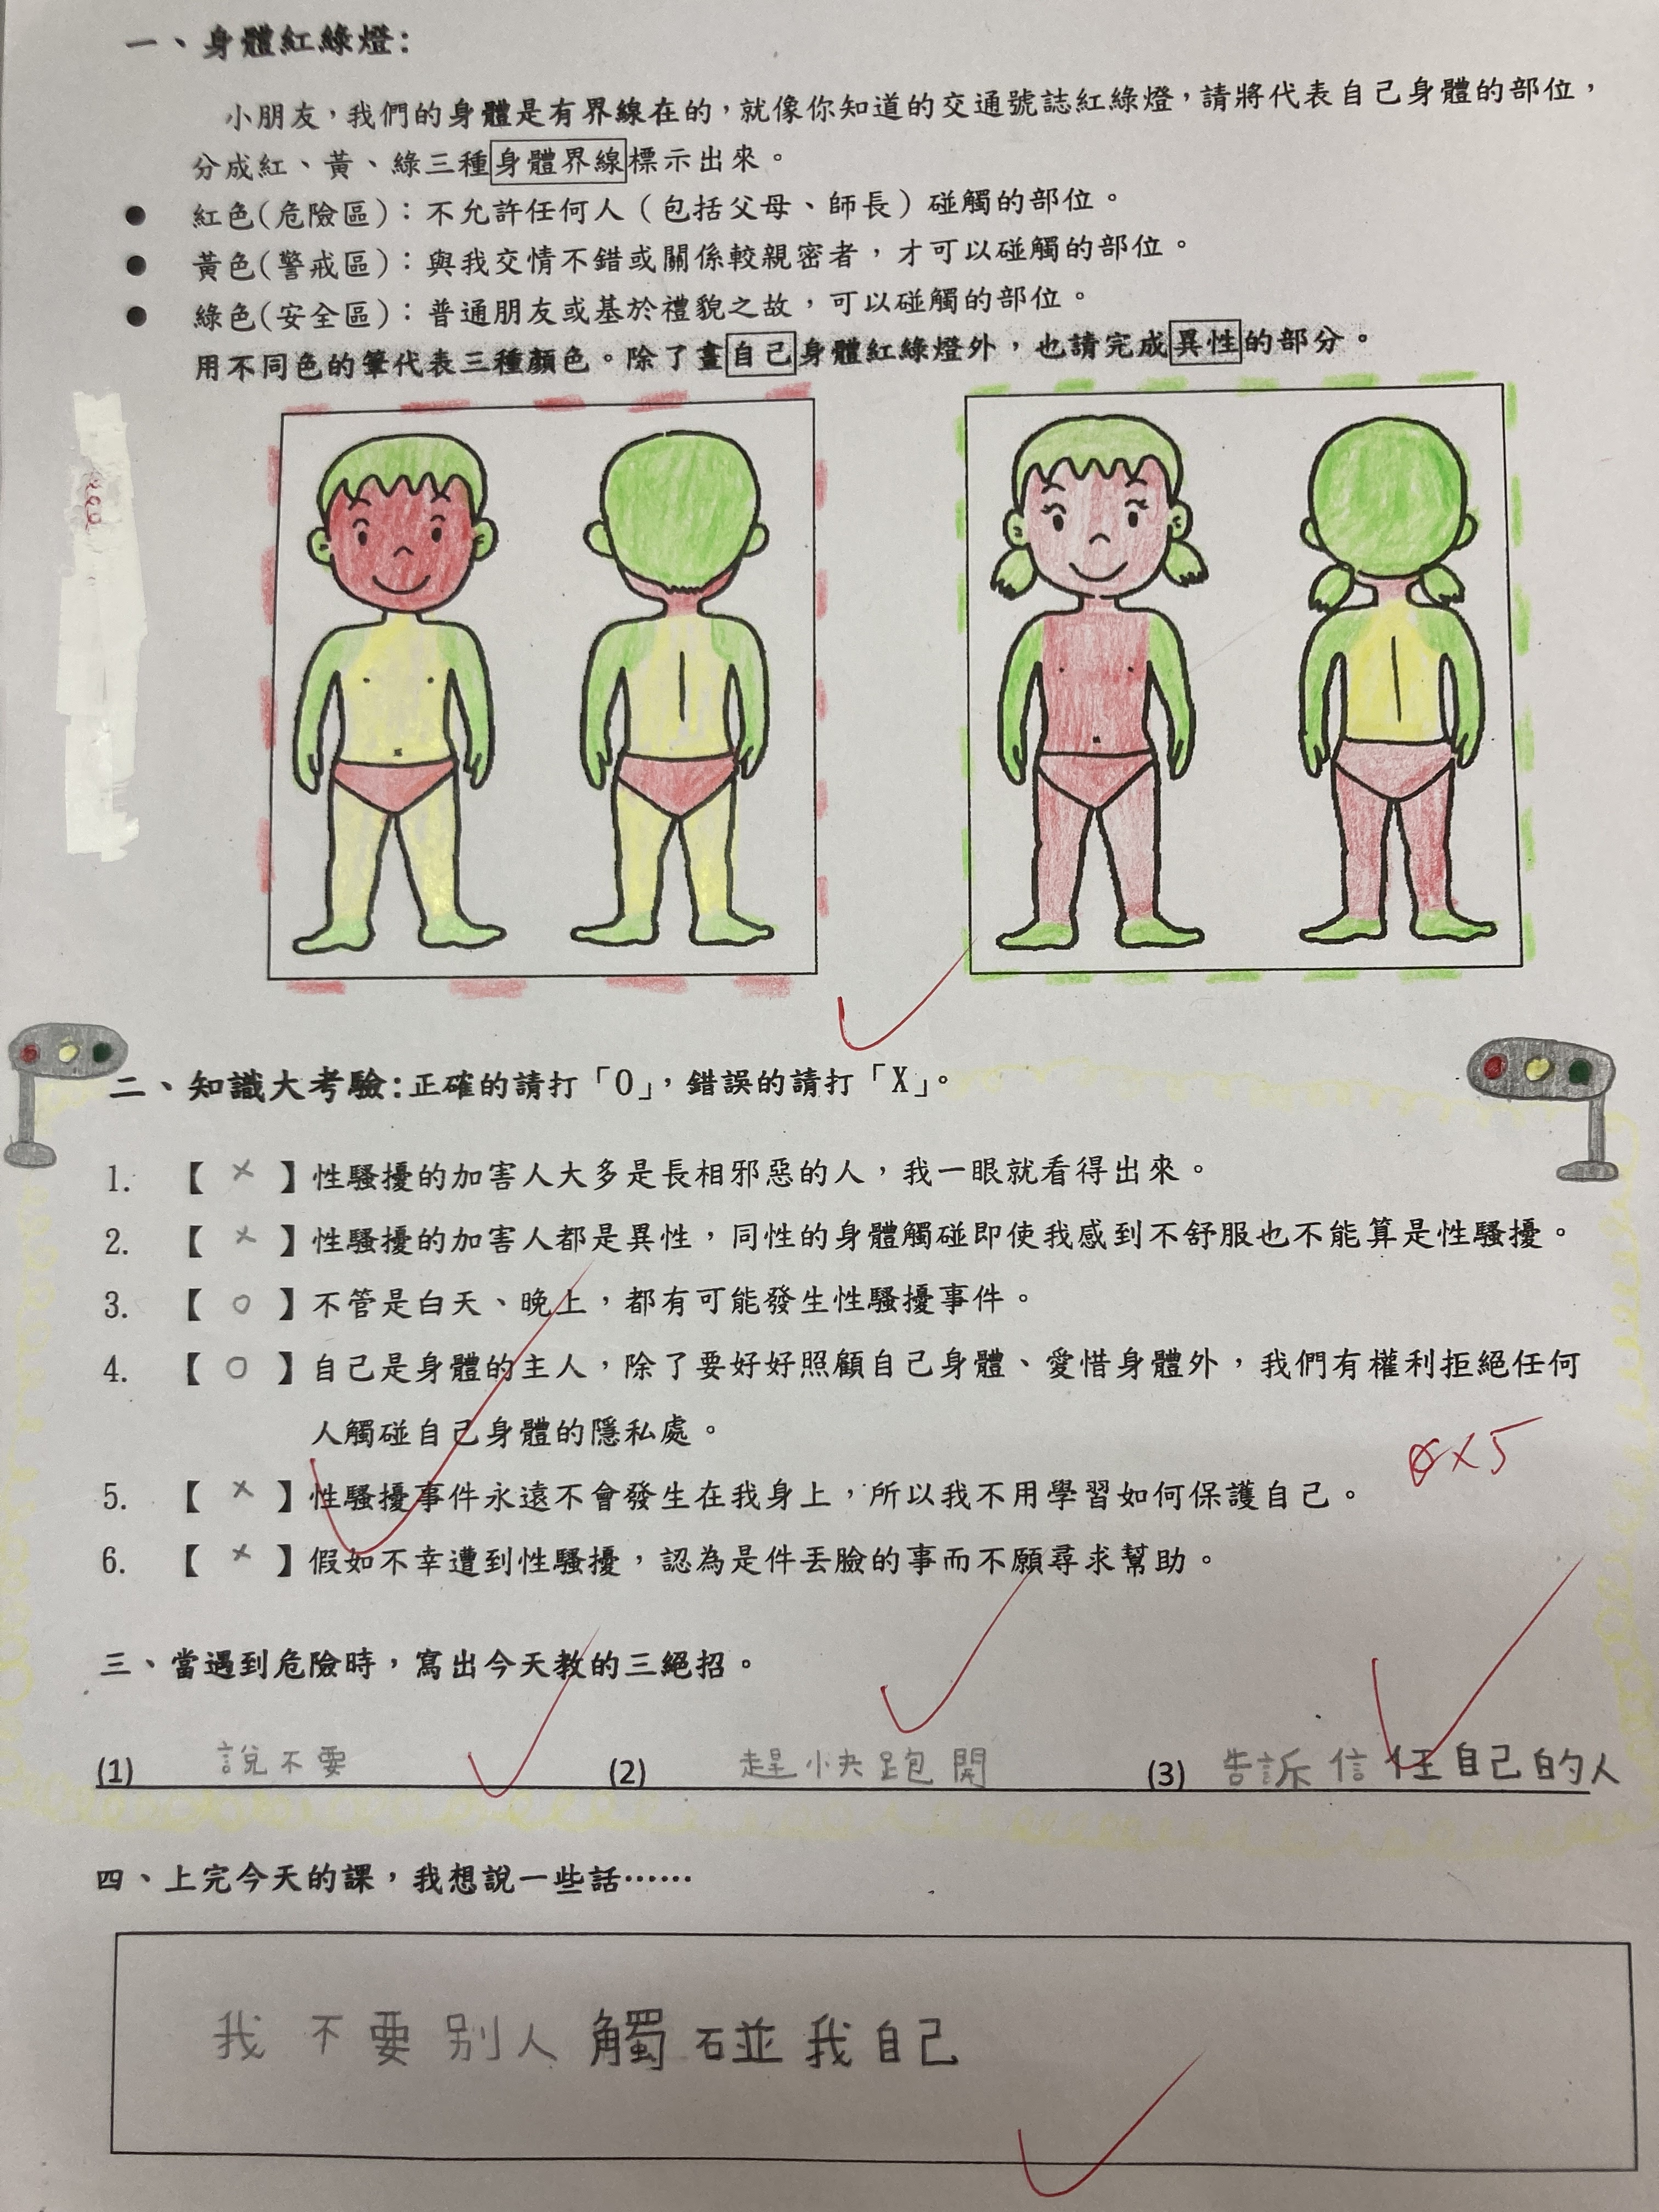 一、身體紅綠燈：
小朋友，我們的身體是有界線在的，就像你知道的交通號誌紅綠燈，請將代表自己身體的部位，
分成紅、黃、綠三種身體界線標示出來。
● 紅色(危險區)：不允許任何人（包括父母、師長）碰觸的部位。
● 黃色(警戒區)：與我交情不錯或關係較親密者，才可以碰觸的部位。
● 綠色(安全區)：普通朋友或基於禮貌之故，可以碰觸的部位。
用不同色的筆代表三種顏色。除了畫自己身體紅綠燈外，也請完成異性的部分。
二、知識大考驗：正確的請打「O」，錯誤的請打「X」。
1. 【 X 】性騷擾的加害人大多是長相邪惡的人，我一眼就看得出來。
2. 【 X 】性騷擾的加害人都是異性，同性的身體觸碰即使我感到不舒服也不能算是性騷擾。
3. 【 O 】不管是白天、晚上，都有可能發生性騷擾事件。
4. 【 O 】自己是身體的主人，除了要好好照顧自己身體、愛惜身體外，我們有權利拒絕任何
人觸碰自己身體的隱私處。
☆x5
5. 【 X 】性騷擾事件永遠不會發生在我身上，所以我不用學習如何保護自己。
6. 【 X 】假如不幸遭到性騷擾，認為是件丟臉的事而不願尋求幫助。
三、當遇到危險時，寫出今天教的三絕招。
(1) 說不要 (2) 趕快跑開 (3) 告訴信任自己的人
四、上完今天的課，我想說一些話⋯⋯
我不要別人觸碰我自己